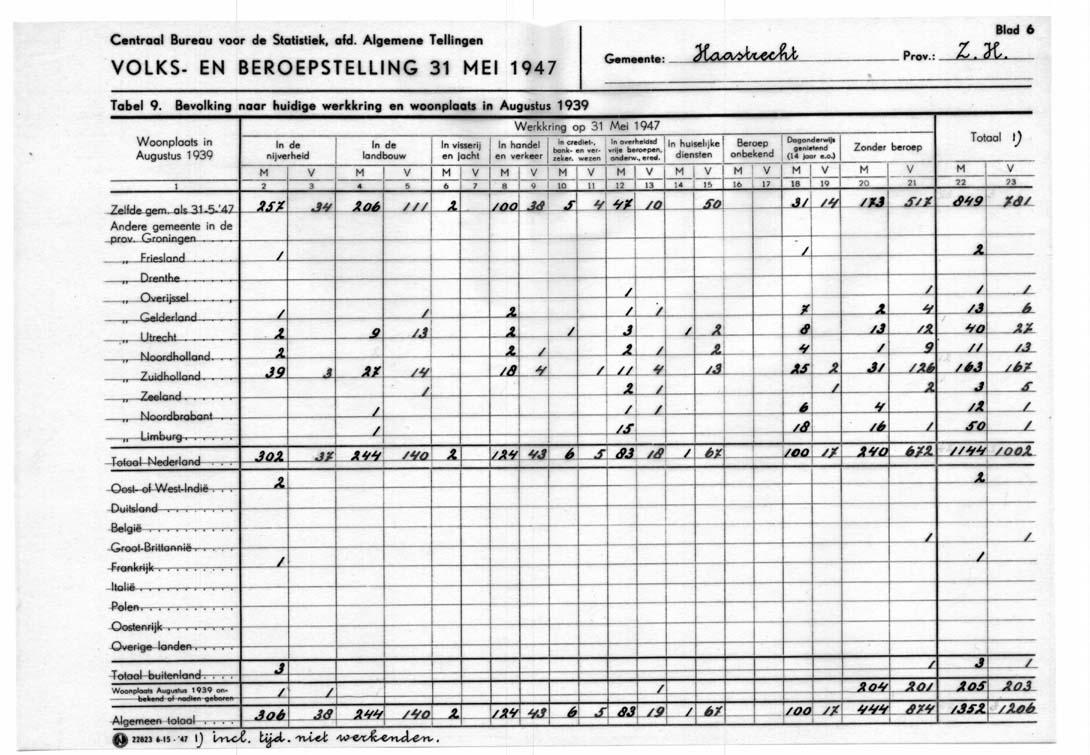 Centraal Bureau voor de Statistiek, afd. Algemene Tellingen
VOLKS- EN BEROEPSTELLING 31 MEI 1947
Gemeente: Haastrecht Prov.: Z. H.
Blad 6
Tabel 9. Bevolking naar huidige werkkring en woonplaats in Augustus 1939
Woonplaats in Augustus 1939 | Werkkring op 31 Mei 1947 | Totaal 1)
In de nijverheid | In de landbouw | In visserij en jacht | In handel en verkeer | In crediet-, bank- en verzeker. wezen | In overheidsd vrije beroepen, onderw., ered. | In huiselijke diensten | Beroep onbekend | Dagonderwijs genietend (14 jaar e.o.) | Zonder beroep
M V M V M V M V M V M V M V M V M V M V M V
1 2 3 4 5 6 7 8 9 10 11 12 13 14 15 16 17 18 19 20 21 22 23
Zelfde gem. als 31-5-'47 257 34 206 111 2 100 38 5 4 47 10 50 31 14 173 517 849 781
Andere gemeente in de
prov. Groningen
„ Friesland 1 1 2
„ Drenthe
„ Overijssel 1 1 1 1
„ Gelderland 1 1 2 1 1 7 2 4 13 6
„ Utrecht 2 9 13 2 1 3 1 2 8 13 12 40 27
„ Noordholland 2 2 1 2 1 2 4 1 9 11 13
„ Zuidholland 39 3 27 14 18 4 1 11 4 13 25 2 31 126 163 167
„ Zeeland 1 2 1 1 2 3 5
„ Noordbrabant 1 1 1 6 4 12 1
„ Limburg 1 15 18 16 1 50 1
Totaal Nederland 302 37 244 140 2 124 43 6 5 83 18 1 67 100 17 240 672 1144 1002
Oost- of West-Indië 2 2
Duitsland
België
Groot-Brittannië 1 1
Frankrijk 1 1
Italië
Polen
Oostenrijk
Overige landen
Totaal buitenland 3 1 3 1
Woonplaats Augustus 1939 on-
bekend of nadien geboren 1 1 1 204 201 205 203
Algemeen totaal 306 38 244 140 2 124 43 6 5 83 19 1 67 100 17 444 874 1352 1206
22823 6-15 - '47 1) incl. tijd. niet werkenden.